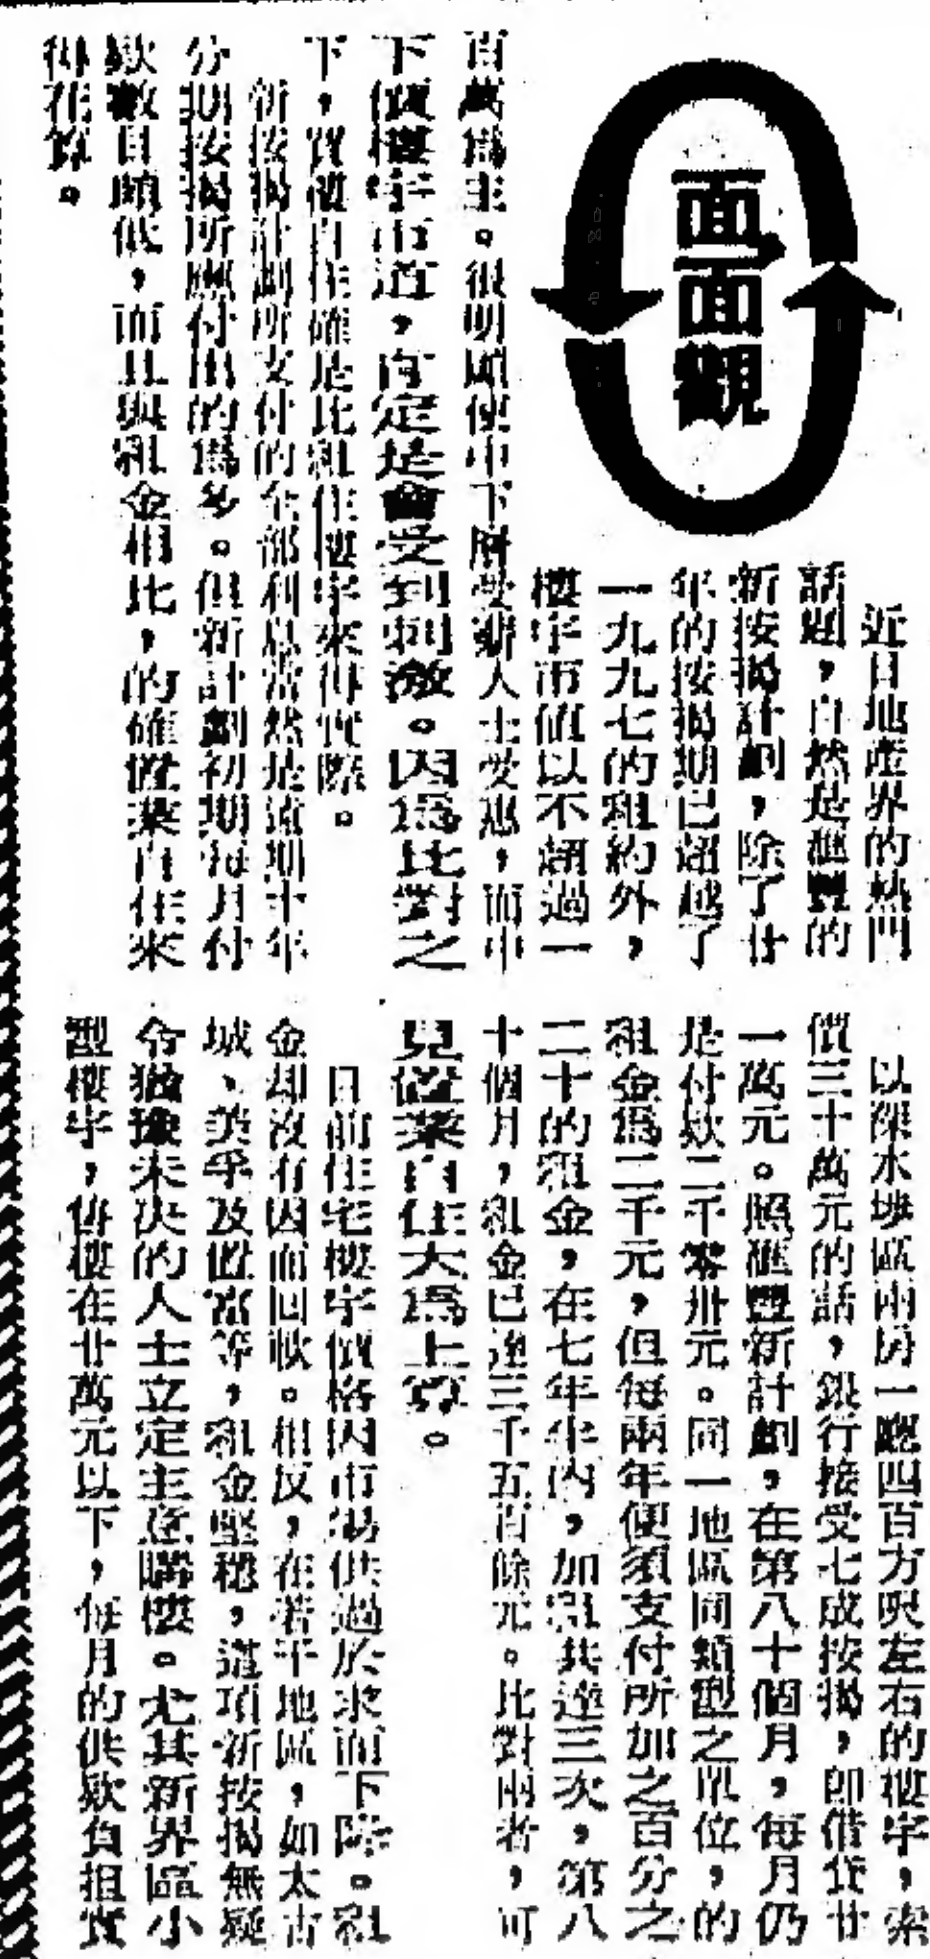 面面觀
近日地產界的熱門
話題，自然是滙豐的
新按揭計劃，除了廿
年的按揭期已超越了
一九九七的租約外，
樓宇市值以不超過一
百萬爲主。很明顯使中下層受薪人士受惠，而中
下價樓宇市道，肯定是會受到刺激。因爲比對之
下，買樓自住確是比租住樓宇來得實際。
新按揭計劃所支付的全部利息當然是遠期十年
分期按揭所應付出的爲多。但新計劃初期每月付
欵數目頗低，而且與租金相比，的確置業自住來
得花算。
以深水埗區兩房一廳四百方呎左右的樓宇，索
價三十萬元的話，銀行接受七成按揭，即借貸廿
一萬元。照滙豐新計劃，在第八十個月，每月仍
是付欵二千零卅元。同一地區同類型之單位，的
租金爲二千元，但每兩年便須支付所加之百分之
二十的租金，在七年半內，加租共達三次，第八
十個月，租金已達三千五百餘元。比對兩者，可
見置業自住大爲上算。
目前住宅樓宇價格因市場供過於求而下降。租
金却沒有因而回軟。相反，在若干地區，如太古
城、美孚及置富等，租金堅穩，這項新按揭無疑
令猶豫未決的人士立定主意購樓。尤其新界區小
型樓宇，售樓在廿萬元以下，每月的供欵負担實